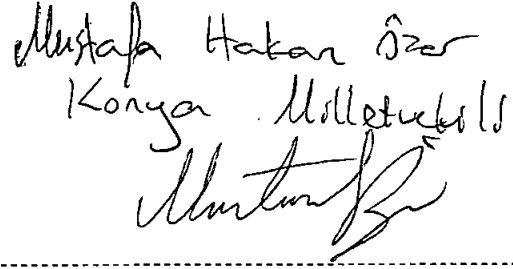 Mustafa Hakan Özer
Konya Milletvekili